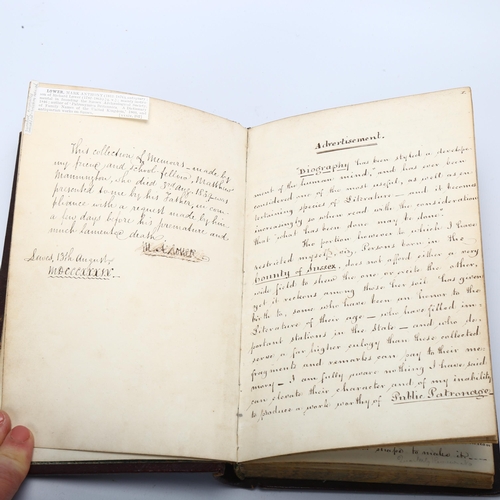 LOWER,
This collection of Memoirs made by
my friend and school-fellow, Matthew
who died 3rd Aug. 1839 was
presented to me by his Father, in com-
pliance with a request made by him
a few days before his premature and
much lamented death.
M. A. Lower
Lewes, 13th August
MDCCCXXXIX.
Advertisement.
"Biography has been styled a develope-
ment of the human mind," and has ever been
considered one of the most useful, as well as en-
tertaining species of Literature — and it becomes
increasingly so when read with the consideration
that 'what has been done may be done'.
The portion however to which I have
restricted myself, viz. Persons born in the
County of Sussex, does not afford either a very
wide field to show the one or excite the other,
yet it reckons among those her soil has given
birth to, some who have been an honor to the
Literature of their age — who have filled im-
portant stations in the State — and who de-
serve a far higher eulogy than these collected
fragments and remarks can pay to their me-
mory — I am fully aware nothing I have said
can elevate their character and of my inability
to produce a work worthy of Public Patronage
to make it